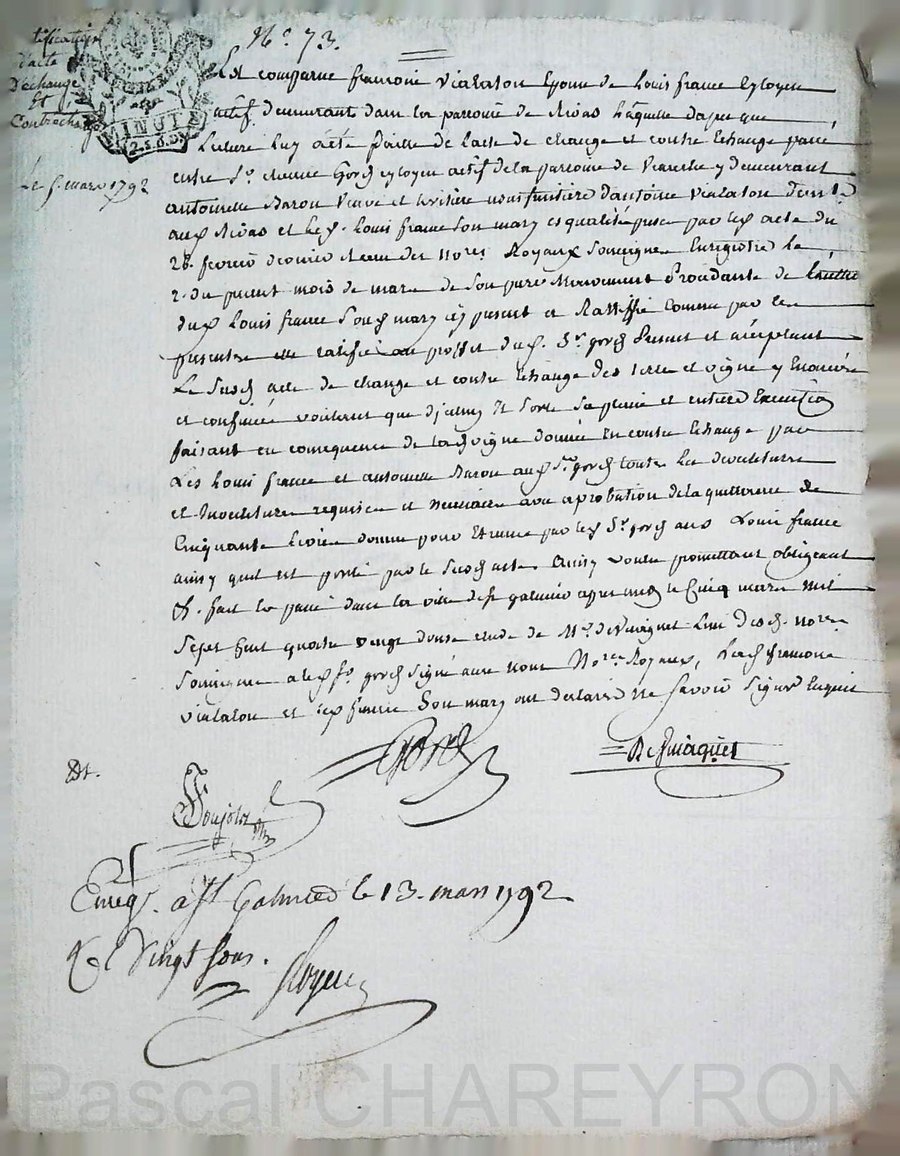 N.o 73.
tification
d'acte
D'échange
Et
Contrechange
Le 5. mars 1792
MINUT
2.S.6.D.
Est comparue francoise Vialaton Epouse de Louis france Cytoyen
actif demeurant dans la paroisse de Rivas Laquelle dapres que
Lecture luy a été faitte de Lacte de change et contre Echange passé
entre S.r Gord cytoyen actif de la paroisse de Veauche y demeurant
antoinette Baron Veuve et heritière usufruitière d'antoine Vialaton
aux Rivas et Led. Louis france son mary es qualités par led. acte du
28. fevrier dernier et nores Royaux Soussigné Enregistré le
2. du present mois de mars de son pure Mouvement de
dud. Louis france Son d. mary icy present et Rattiffié Comme par les
presentes elle ratifie au proffit dud. S.r Gord present et acceptant
Le Susd. acte de change et contre Echange des terre et vigne y Enoncés
et confinés voulant que Sorte Sa pleine et entiere Execution
faisant en consequence de lad. vigne donnée En contre Echange par
Les Louis france et antoinette Baron aud. S.r Gord toutes Les devetitures
et Investitures requises et necessaires avec aprobation de la quittance de
Cinquante Livres donnée pour Etrenne par led. S.r Gord aud. Louis france
ainsy quil est porté par le Susd. acte. Ainsy voulu promettant obligeant
&. fait et passé dans la ville de S.t galmier apres midy le Cinq mars Mil
Sept Cent quatre vingt douze etude de M.e Desvernay L'un desd. nores
Soussigné a led. S.r Gord signé avec nous Nores Royaux, Lad. francoise
vialaton et led. france Son mary ont declaré ne Savoir Signer Enquis
Gord
Dt.
Poujol
Enreg. a S.t Galmier le 13. mars 1792
R. Vingt sous.
Royer
Pascal CHAREYRON